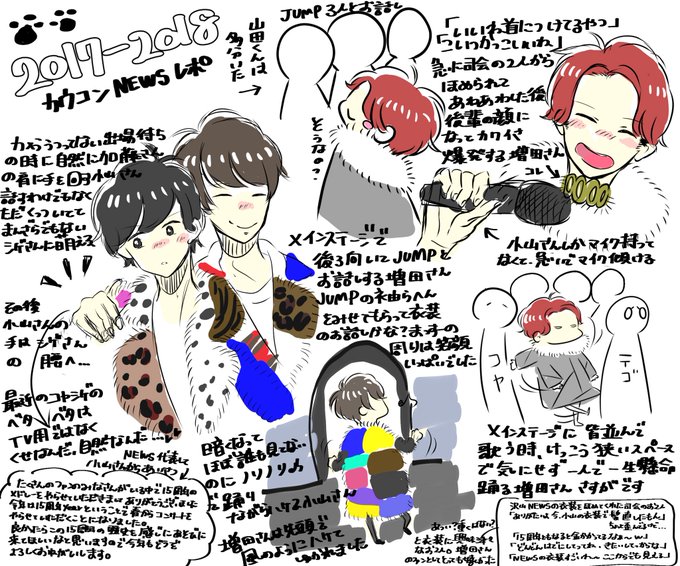 2017-2018
カウコン NEWS レポ
山田くんは
多分いた
JUMP 3人とお話し
そうなの?
「いいね首につけてるやつ」
「こいつかっこいいわ」
急に司会の2人から
ほめられて
あわあわした後
後輩の顔に
なってカワイさ
爆発する増田さん
コレ
小山さんしかマイク持って
なくて、急いでマイク傾ける
カメラうつってない出場待ち
の時に自然に加藤さん
の肩に手を回す小山さん
話すわけでもなく
ただくっついてて
まんざらでもない
シゲさんに萌える
その後
小山さんの
手はシゲさん
の腰へ…
最近のコヤシゲの
ベタベタは
TV用ではなく
くせなんだ。自然なんだ…
メインステージで
後ろ向いてJUMPと
お話しする増田さん
JUMPの袖らへん
をみせてもらって衣装
のお話しかな?ますーの
周りは笑顔
いっぱいでした
コヤ
テゴ
メインステージに皆並んで
歌う時、けっこう狭いスペース
で気にせず一人で一生懸命
踊る増田さん さすがです
暗くなって
ほぼ誰も見てない
のにノリノリ
で踊り
ながらハケる小山さん
増田さんは先頭で
風のようにハケて
ゆかれました
NEWS代表して
小山さんからあいさつ
たくさんのファンのみなさんがいる中で15周年の
メドレーをやらせていただきましてありがとうございます
今年は15周年YEARということで春からコンサートを
やらせていただくことになりました。
良かったらこの15周年の歴史を感じにあそびに
来てほしいなと思いますので今年もどうぞ
よろしくおねがいします。
沢山NEWSの衣装をほめてくれた司会のお二人
「ありがたいは今、小山の衣装で
「15周年ともなると金かかってるなぁ〜w」
「NEWSの衣装だいわぁ〜ここからでも見える」